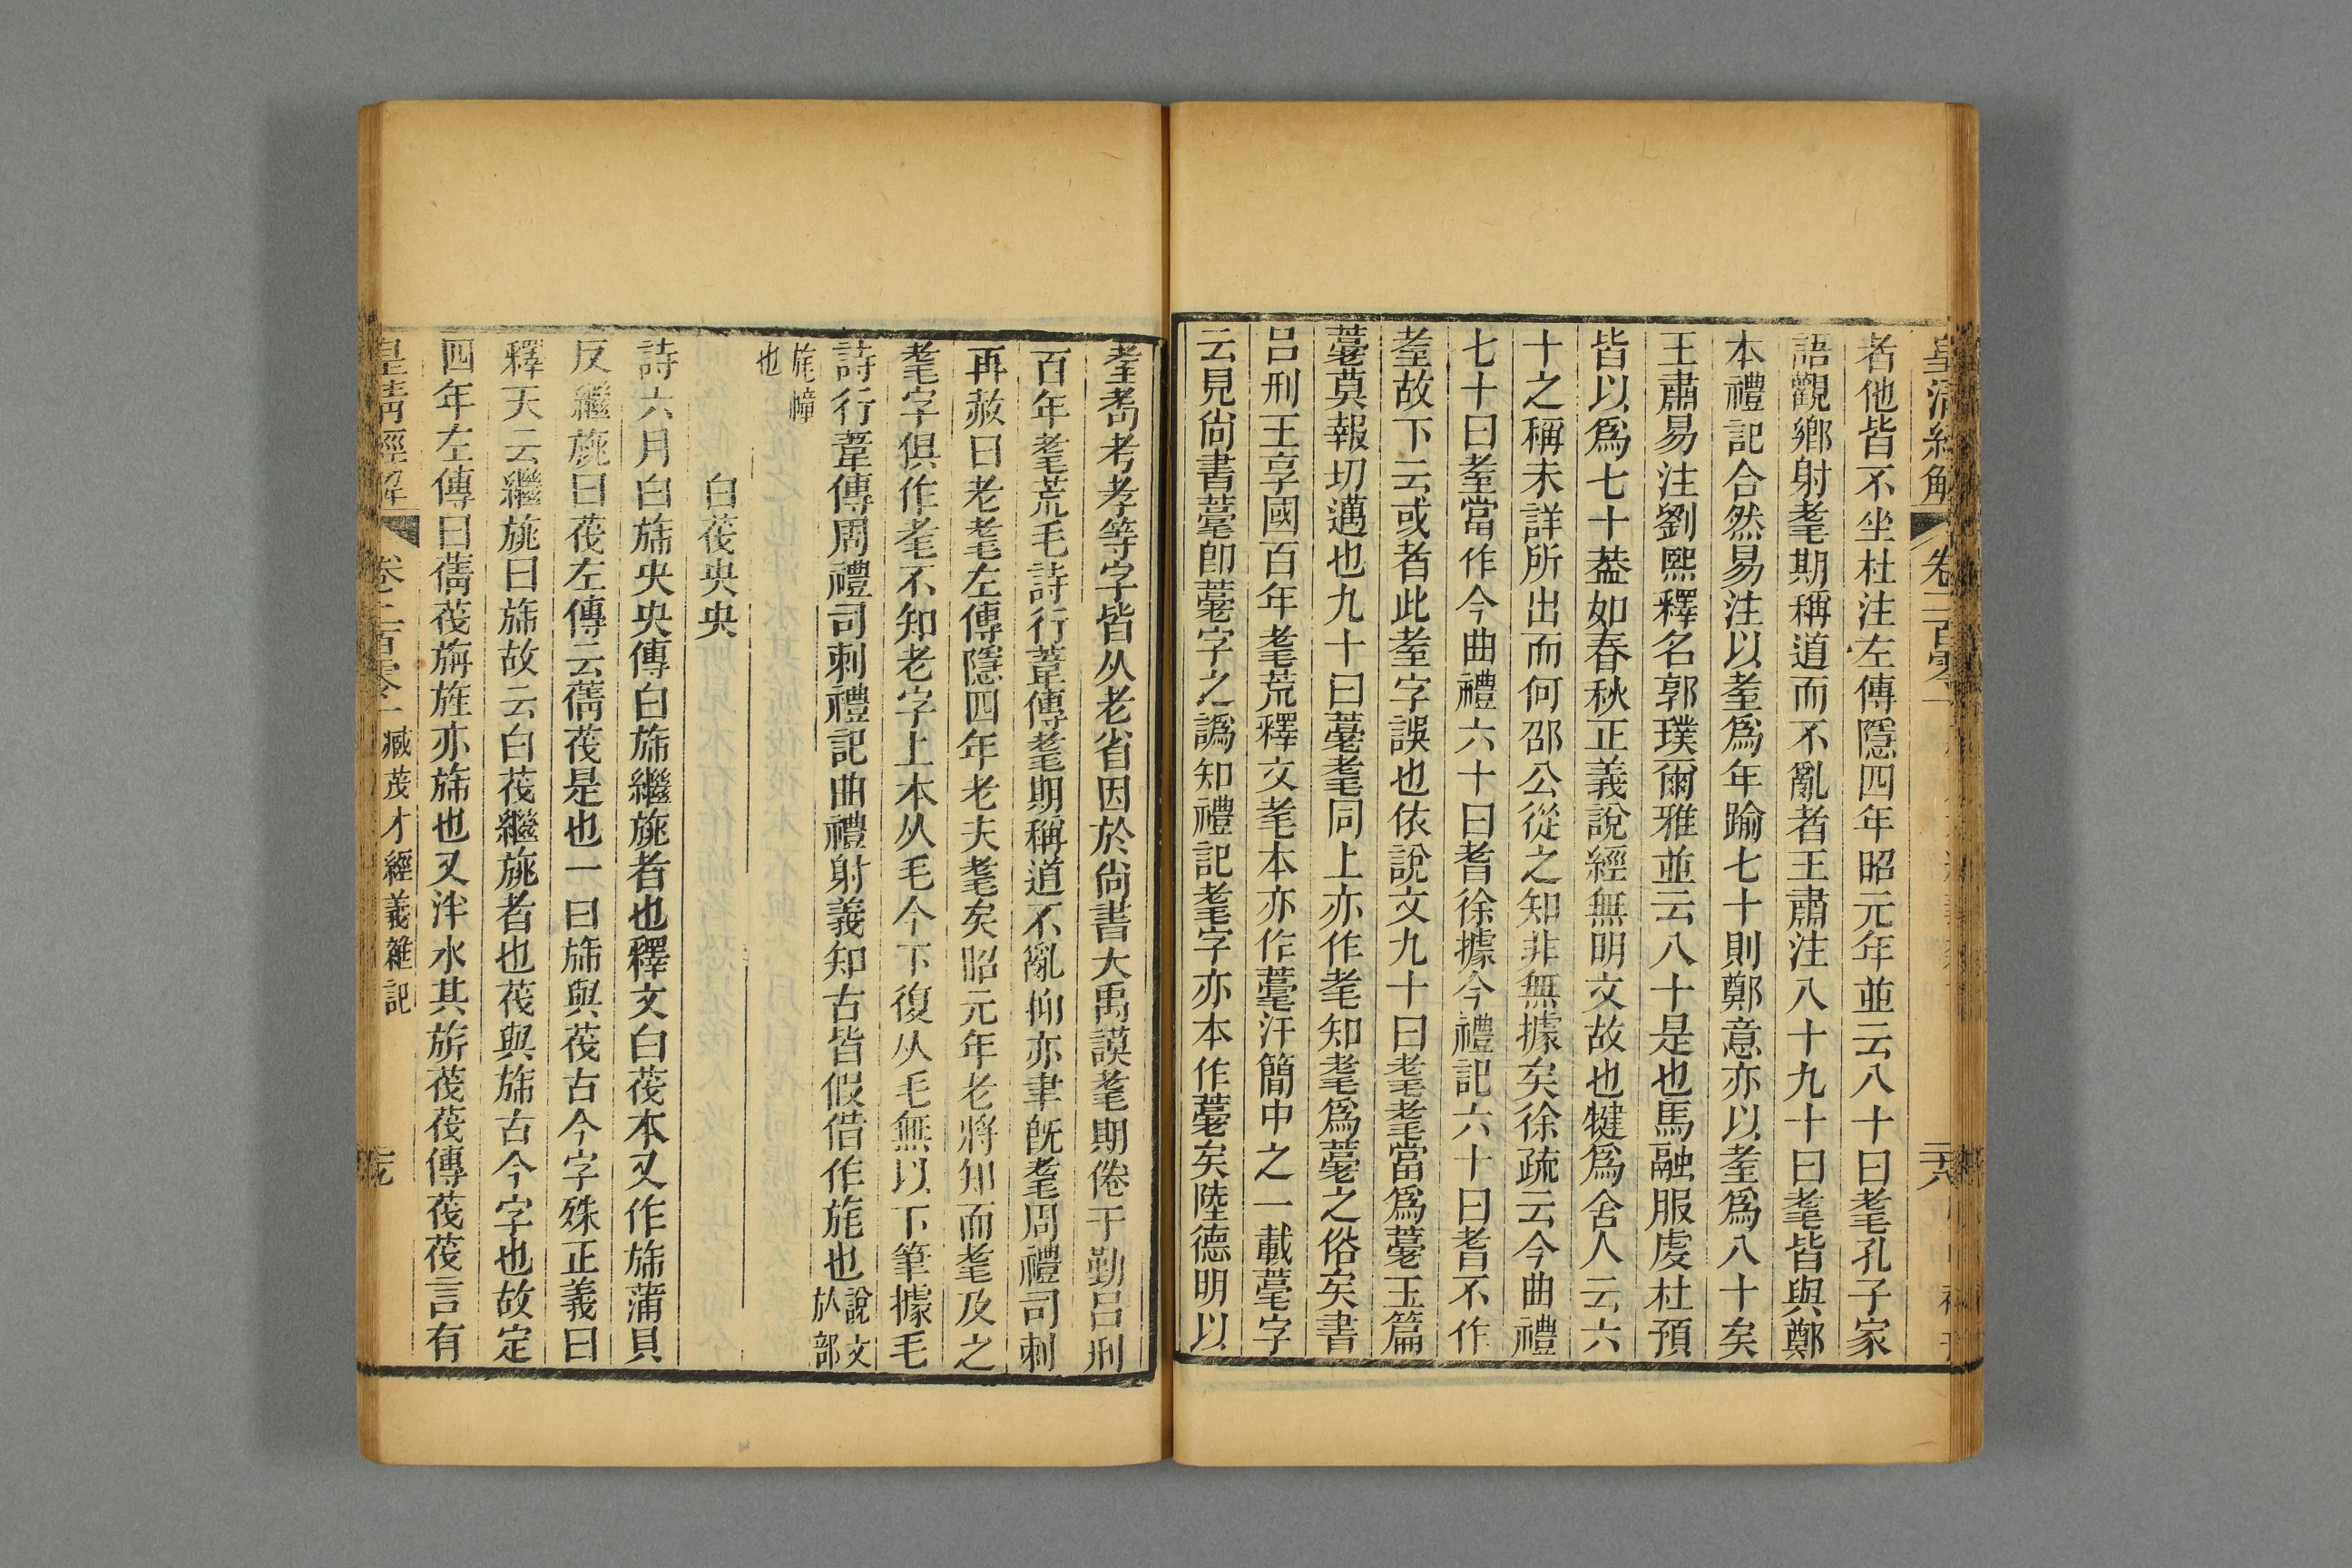 皇清經解 卷二百零一 二六
者他皆不坐杜注左傳隱四年昭元年並云八十曰耄孔子家
語觀鄉射耄期稱道而不亂者王肅注八十九十曰耄皆與鄭
本禮記合然易注以耋爲年踰七十則鄭意亦以耋爲八十矣
王肅易注劉熙釋名郭璞爾雅並云八十是也馬融服虔杜預
皆以爲七十葢如春秋正義說經無明文故也犍爲舍人云六
十之稱未詳所出而何邵公從之知非無據矣徐疏云今曲禮
七十曰耋當作今曲禮六十曰耆徐據今禮記六十曰耆不作
耋故下云或者此耋字誤也依說文九十曰耄耄當爲薹玉篇
薹莫報切邁也九十曰薹耄同上亦作耄知耄爲薹之俗矣書
呂刑王享國百年耄荒釋文耄本亦作薹汗簡中之一載薹字
云見尚書薹卽薹字之譌知禮記耄字亦本作薹矣陸德明以
耋耇考孝等字皆从老省因於尚書大禹謨耄期倦于勤呂刑
百年耄荒毛詩行葦傳耄期稱道不亂仰亦聿旣耄周禮司刺
再赦曰老耄左傳隱四年老夫耄矣昭元年老將知而耄及之
耄字俱作耄不知老字上本从毛今下復从毛無以下筆據毛
詩行葦傳周禮司刺禮記曲禮射義知古皆假借作旄也說文㫃部
旄幢也
白茷央央
詩六月白斾央央傳白斾繼旐者也釋文白茷本又作斾蒲貝
反繼旐曰茷左傳云蒨茷是也一曰斾與茷古今字殊正義曰
釋天云繼旐曰斾故云白茷繼旐者也茷與斾古今字也故定
四年左傳曰蒨茷旃旌亦斾也又泮水其旂茷茷傳茷茷言有
皇清經解 卷二百零一 臧茂才經義雜記 二七